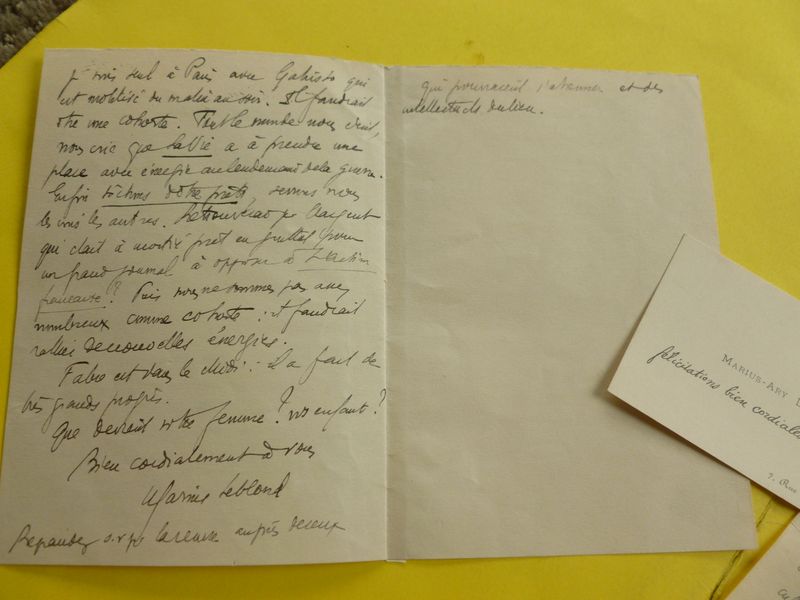 suis seul à Paris avec Gabisto qui
est mobilisé du matin au soir. Il faudrait
être une cohorte. Tout le monde nous écrit,
nous crie que La Vie a à prendre une
place avec énergie au lendemain de la guerre.
Enfin tâchons d'être prêts, serrons nous
les uns les autres. Retrouverai-je l'argent
qui était à moitié prêt en juillet pour
un grand journal à opposer à L'Action
française? Puis nous ne sommes pas assez
nombreux comme cohorte : il faudrait
rallier de nouvelles énergies.
Fabre est dans le Midi : Il a fait de
très grands progrès.
Que devient votre femme? vos enfants?
Bien cordialement à vous
Marius Leblond
Répandez s.v.p. la revue auprès de ceux
qui pourraient s'abonner et des
intellectuels du lieu.
MARIUS-ARY L
félicitations bien cordiale
Rue